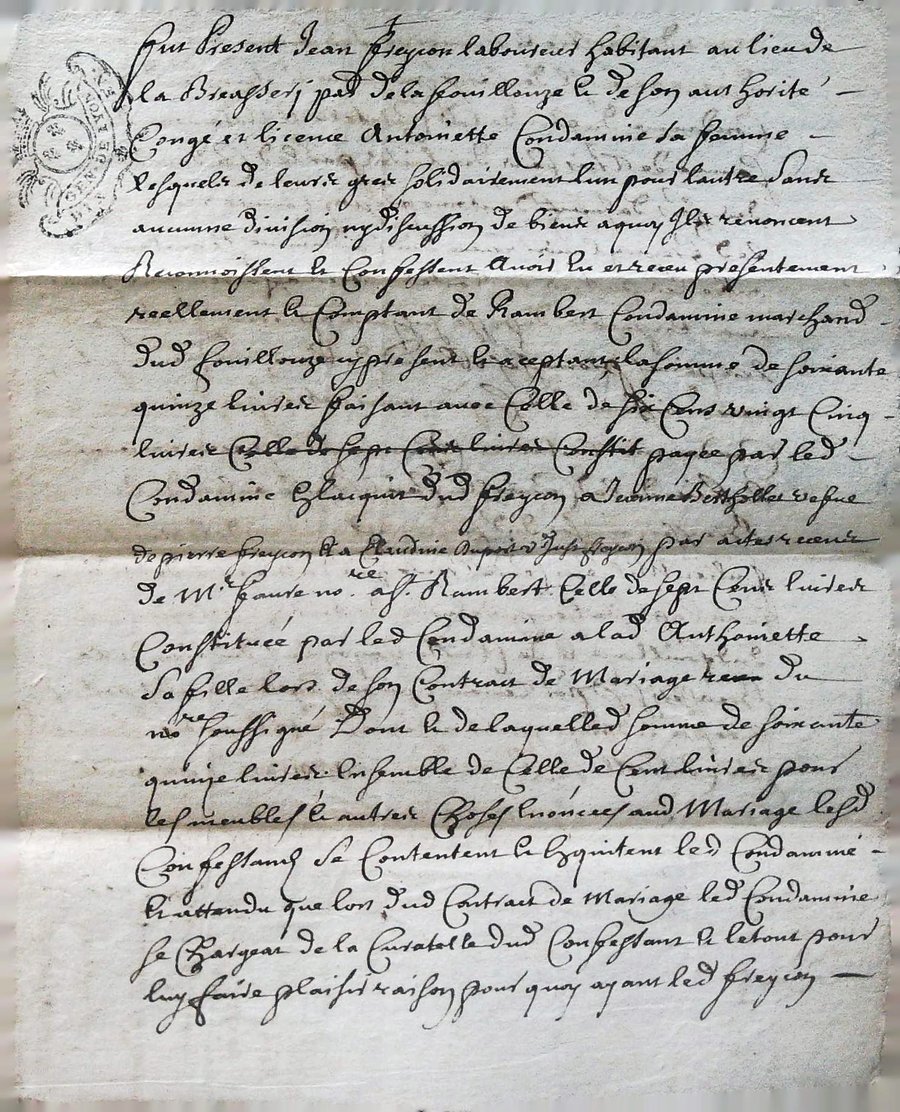 fut Present Jean freycon laboureur habitant au lieu de
la Breasserj par. de la fouillouze & de son authorité
Congé et licence Antoinette Condamine Sa femme
lesquels de leurs grez solidairement lun pour lautre Sans
aucunne division ny discussion de biens a quoy Ils renoncent
Reconnoissent & Confessent Avoir eu et receu presentement
reellement & Comptant de Rambert Condamine marchand
dud fouillouze cy present & aceptant la somme de soixante
quinze livres faisant avec Celle de six Cens vingt Cinq
livres Celle de sept Cens livres Constit payée par led
Condamine a lacquit dud freycon a Jeanne Berthollet vefue
de pierre freycon & a Claudine Just freycon par actes receus
de Mr. faure nore. a St. Rambert Celle de sept Cens livres
Constituée par led Condamine a lad Anthoinette
Sa fille lors de son Contract de Mariage receu du
nore soussigné Dont & de laquelled somme de soixante
quinze livres Ensemble de Celle de Cent livres pour
les meubles & autres Choses enoncées aud Mariage lesd
Confessans Se Contentent & Equitent led Condamine
& attendu que lors dud Contract de Mariage led Condamine
se Chargeat de la Curatelle dud Confessant & le tout pour
luy faire plaisir raison pour quoy ayant led freycon